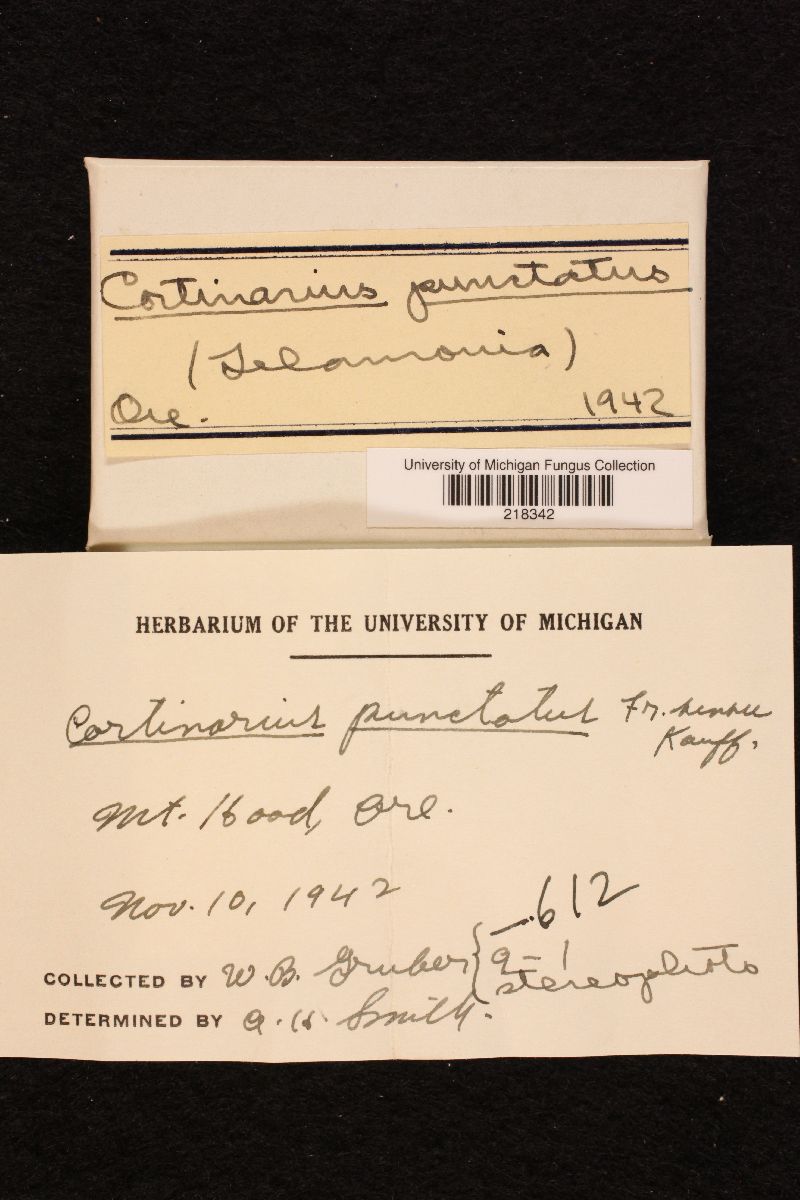 Cortinarius punctatus
(Telamonia)
Ore. 1942
University of Michigan Fungus Collection
218342
HERBARIUM OF THE UNIVERSITY OF MICHIGAN
Cortinarius punctatus Fr. sensu
Kauff.
Mt. Hood, Ore.
Nov. 10, 1942
-612
COLLECTED BY W.B. Gruber { 9-1
stereophoto
DETERMINED BY A.H. Smith.